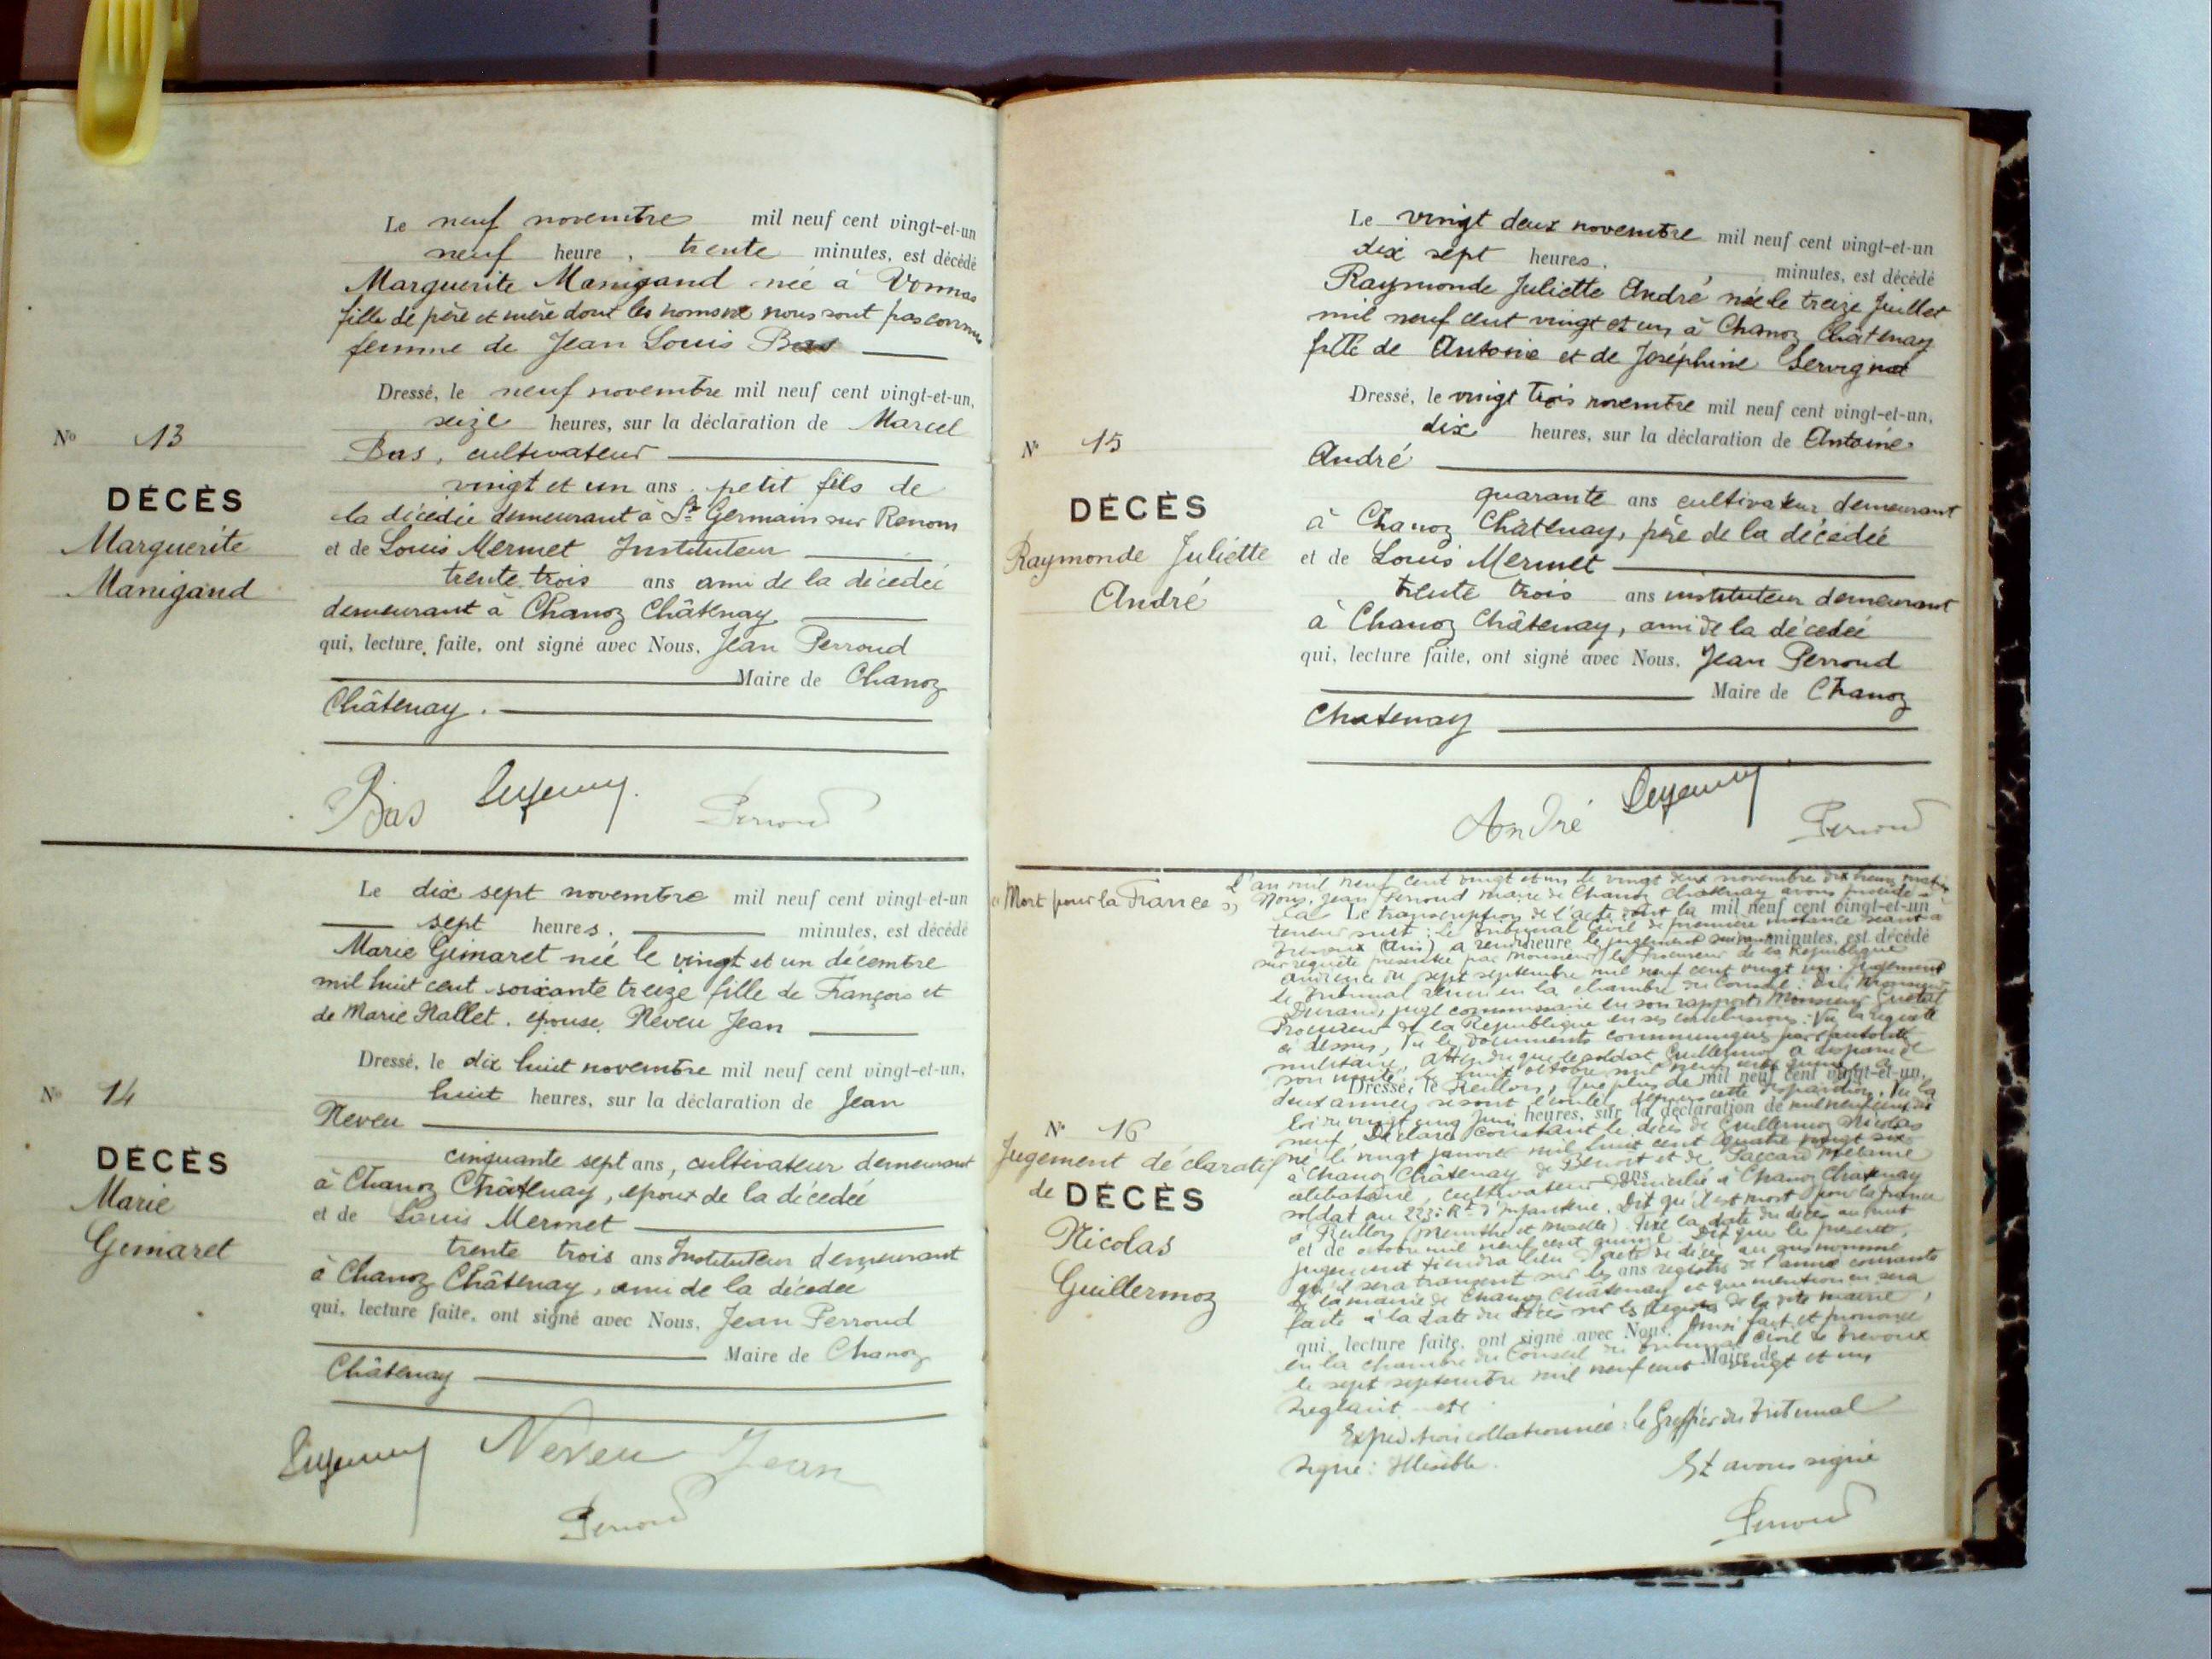 Le neuf novembre mil neuf cent vingt-et-un
neuf heure, trente minutes, est décédé
Marguerite Manigand née à Vonnas
fille de père et mère dont les noms ne nous sont pas connus
femme de Jean Louis Bas
Dressé, le neuf novembre mil neuf cent vingt-et-un,
seize heures, sur la déclaration de Marcel
Bas, cultivateur
vingt et un ans, petit fils de
la décédée demeurant à St Germain sur Renom
et de Louis Mermet Instituteur
trente trois ans ami de la décédée
demeurant à Chanoz Châtenay
qui, lecture faite, ont signé avec Nous, Jean Perroud
Maire de Chanoz
Châtenay.
No 13
DÉCÈS
Marguerite
Manigand
Bas Perroud
Le dix sept novembre mil neuf cent vingt-et-un
sept heures, minutes, est décédé
Marie Gimaret née le vingt et un décembre
mil huit cent soixante treize fille de François et
de Marie Nallet, épouse Neveu Jean
Dressé, le dix huit novembre mil neuf cent vingt-et-un,
huit heures, sur la déclaration de Jean
Neveu
cinquante sept ans, cultivateur demeurant
à Chanoz Châtenay, époux de la décédée
et de Louis Mermet
trente trois ans Instituteur demeurant
à Chanoz Châtenay, ami de la décédée
qui, lecture faite, ont signé avec Nous, Jean Perroud
Maire de Chanoz
Châtenay
No 14
DÉCÈS
Marie
Gimaret
Neveu Jean
Perroud
Le vingt deux novembre mil neuf cent vingt-et-un
dix sept heures, minutes, est décédé
Raymonde Juliette André née le treize Juillet
mil neuf cent vingt et un à Chanoz Châtenay
fille de Antoine et de Joséphine Servignat
Dressé, le vingt trois novembre mil neuf cent vingt-et-un,
dix heures, sur la déclaration de Antoine
André
quarante ans cultivateur demeurant
à Chanoz Châtenay, père de la décédée
et de Louis Mermet
trente trois ans instituteur demeurant
à Chanoz Châtenay, ami de la décédée
qui, lecture faite, ont signé avec Nous, Jean Perroud
Maire de Chanoz
Chatenay
No 15
DÉCÈS
Raymonde Juliette
André
André Perroud
« Mort pour la France »
No 16
Jugement déclaratif
de DÉCÈS
Nicolas
Guillermoz
L'an mil neuf cent vingt et un le vingt deux novembre dix heures matin
Nous, Jean Perroud maire de Chanoz Chatenay avons procédé à
la Le transcription de l'acte dont la mil neuf cent vingt-et-un
teneur suit : le Tribunal Civil de première instance séant à
Trévoux (Ain) a rendu heure le jugement suivant minutes, est décédé
sur requête présentée par Monsieur le Procureur de la République
audience du sept septembre mil neuf cent vingt un. Jugement
le Tribunal réuni en la chambre du Conseil : Oui Monsieur
Durand, juge commissaire en son rapport, Monsieur
Procureur de la République en ses conclusions : Vu la requête
ci dessus, Vu les documents communiqués par l'autorité
militaire, attendu que le soldat Guillermoz a disparu de
son unité le huit octobre mil neuf cent quinze à
Dressé, le Reillon, que plus de mil neuf cent vingt-et-un,
deux années se sont écoulées depuis cette disparition, Vu la
loi du vingt cinq Juin heures, sur la déclaration de mil neuf cent dix
neuf, Déclare constant le décès de Guillermoz Nicolas
né le vingt janvier mil huit cent quatre vingt six
à Chanoz Châtenay de Benoit et de Paccard Mélanie
ans
célibataire, cultivateur domicilié à Chanoz Châtenay
soldat au 223e Rt d'Infanterie. Dit qu'il est mort pour la France
à Reillon (Meurthe et Moselle) Fixe la date du décès au huit
et de octobre mil neuf cent quinze. Dit que le présent
jugement tiendra lieu d'acte de décès au sus nommé
qu'il sera transcrit sur les ans registres de l'année courante
de la mairie de Chanoz Châtenay et que mention en sera
faite à la date du décès sur les registres de la dite mairie,
qui, lecture faite, ont signé avec Nous, Ainsi fait et prononcé
en la chambre du Conseil du Tribunal civil de Trévoux
Maire de
le sept septembre mil neuf cent vingt et un
Expédition collationnée : le Greffier du Tribunal
Signé : Illisible. Et avons signé
Perroud